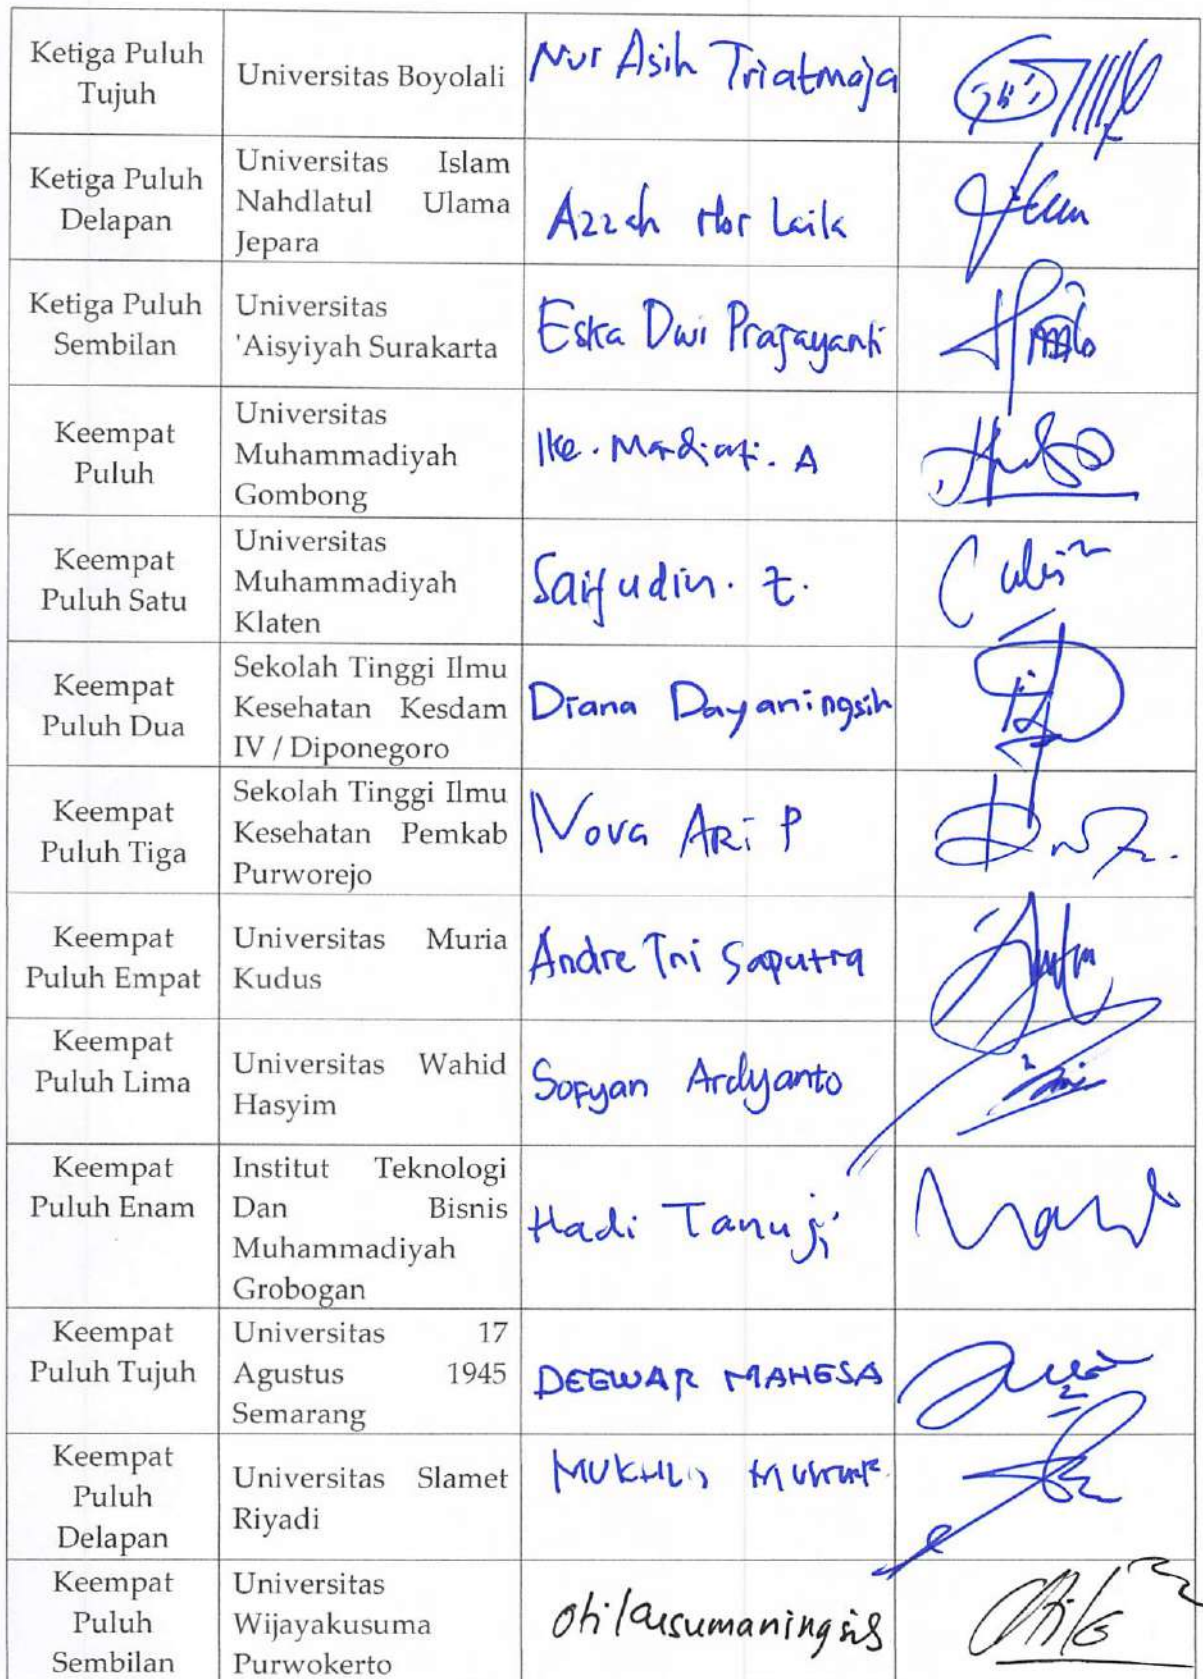 Ketiga Puluh
Tujuh
Universitas Boyolali
Nur Asih Triatmaja
Ketiga Puluh
Delapan
Universitas Islam
Nahdlatul Ulama
Jepara
Azzah Nor Laila
Ketiga Puluh
Sembilan
Universitas
'Aisyiyah Surakarta
Eska Dwi Prajayanti
Keempat
Puluh
Universitas
Muhammadiyah
Gombong
Ike. Mardiati. A
Keempat
Puluh Satu
Universitas
Muhammadiyah
Klaten
Saifudin. Z.
Keempat
Puluh Dua
Sekolah Tinggi Ilmu
Kesehatan Kesdam
IV / Diponegoro
Diana Dayaningsih
Keempat
Puluh Tiga
Sekolah Tinggi Ilmu
Kesehatan Pemkab
Purworejo
Nova ARi P
Keempat
Puluh Empat
Universitas Muria
Kudus
Andre Tri Saputra
Keempat
Puluh Lima
Universitas Wahid
Hasyim
Sofyan Ardyanto
Keempat
Puluh Enam
Institut Teknologi
Dan Bisnis
Muhammadiyah
Grobogan
Hadi Tanuji
Keempat
Puluh Tujuh
Universitas 17
Agustus 1945
Semarang
DEEWAR MAHESA
Keempat
Puluh
Delapan
Universitas Slamet
Riyadi
MUKHLIS
Keempat
Puluh
Sembilan
Universitas
Wijayakusuma
Purwokerto